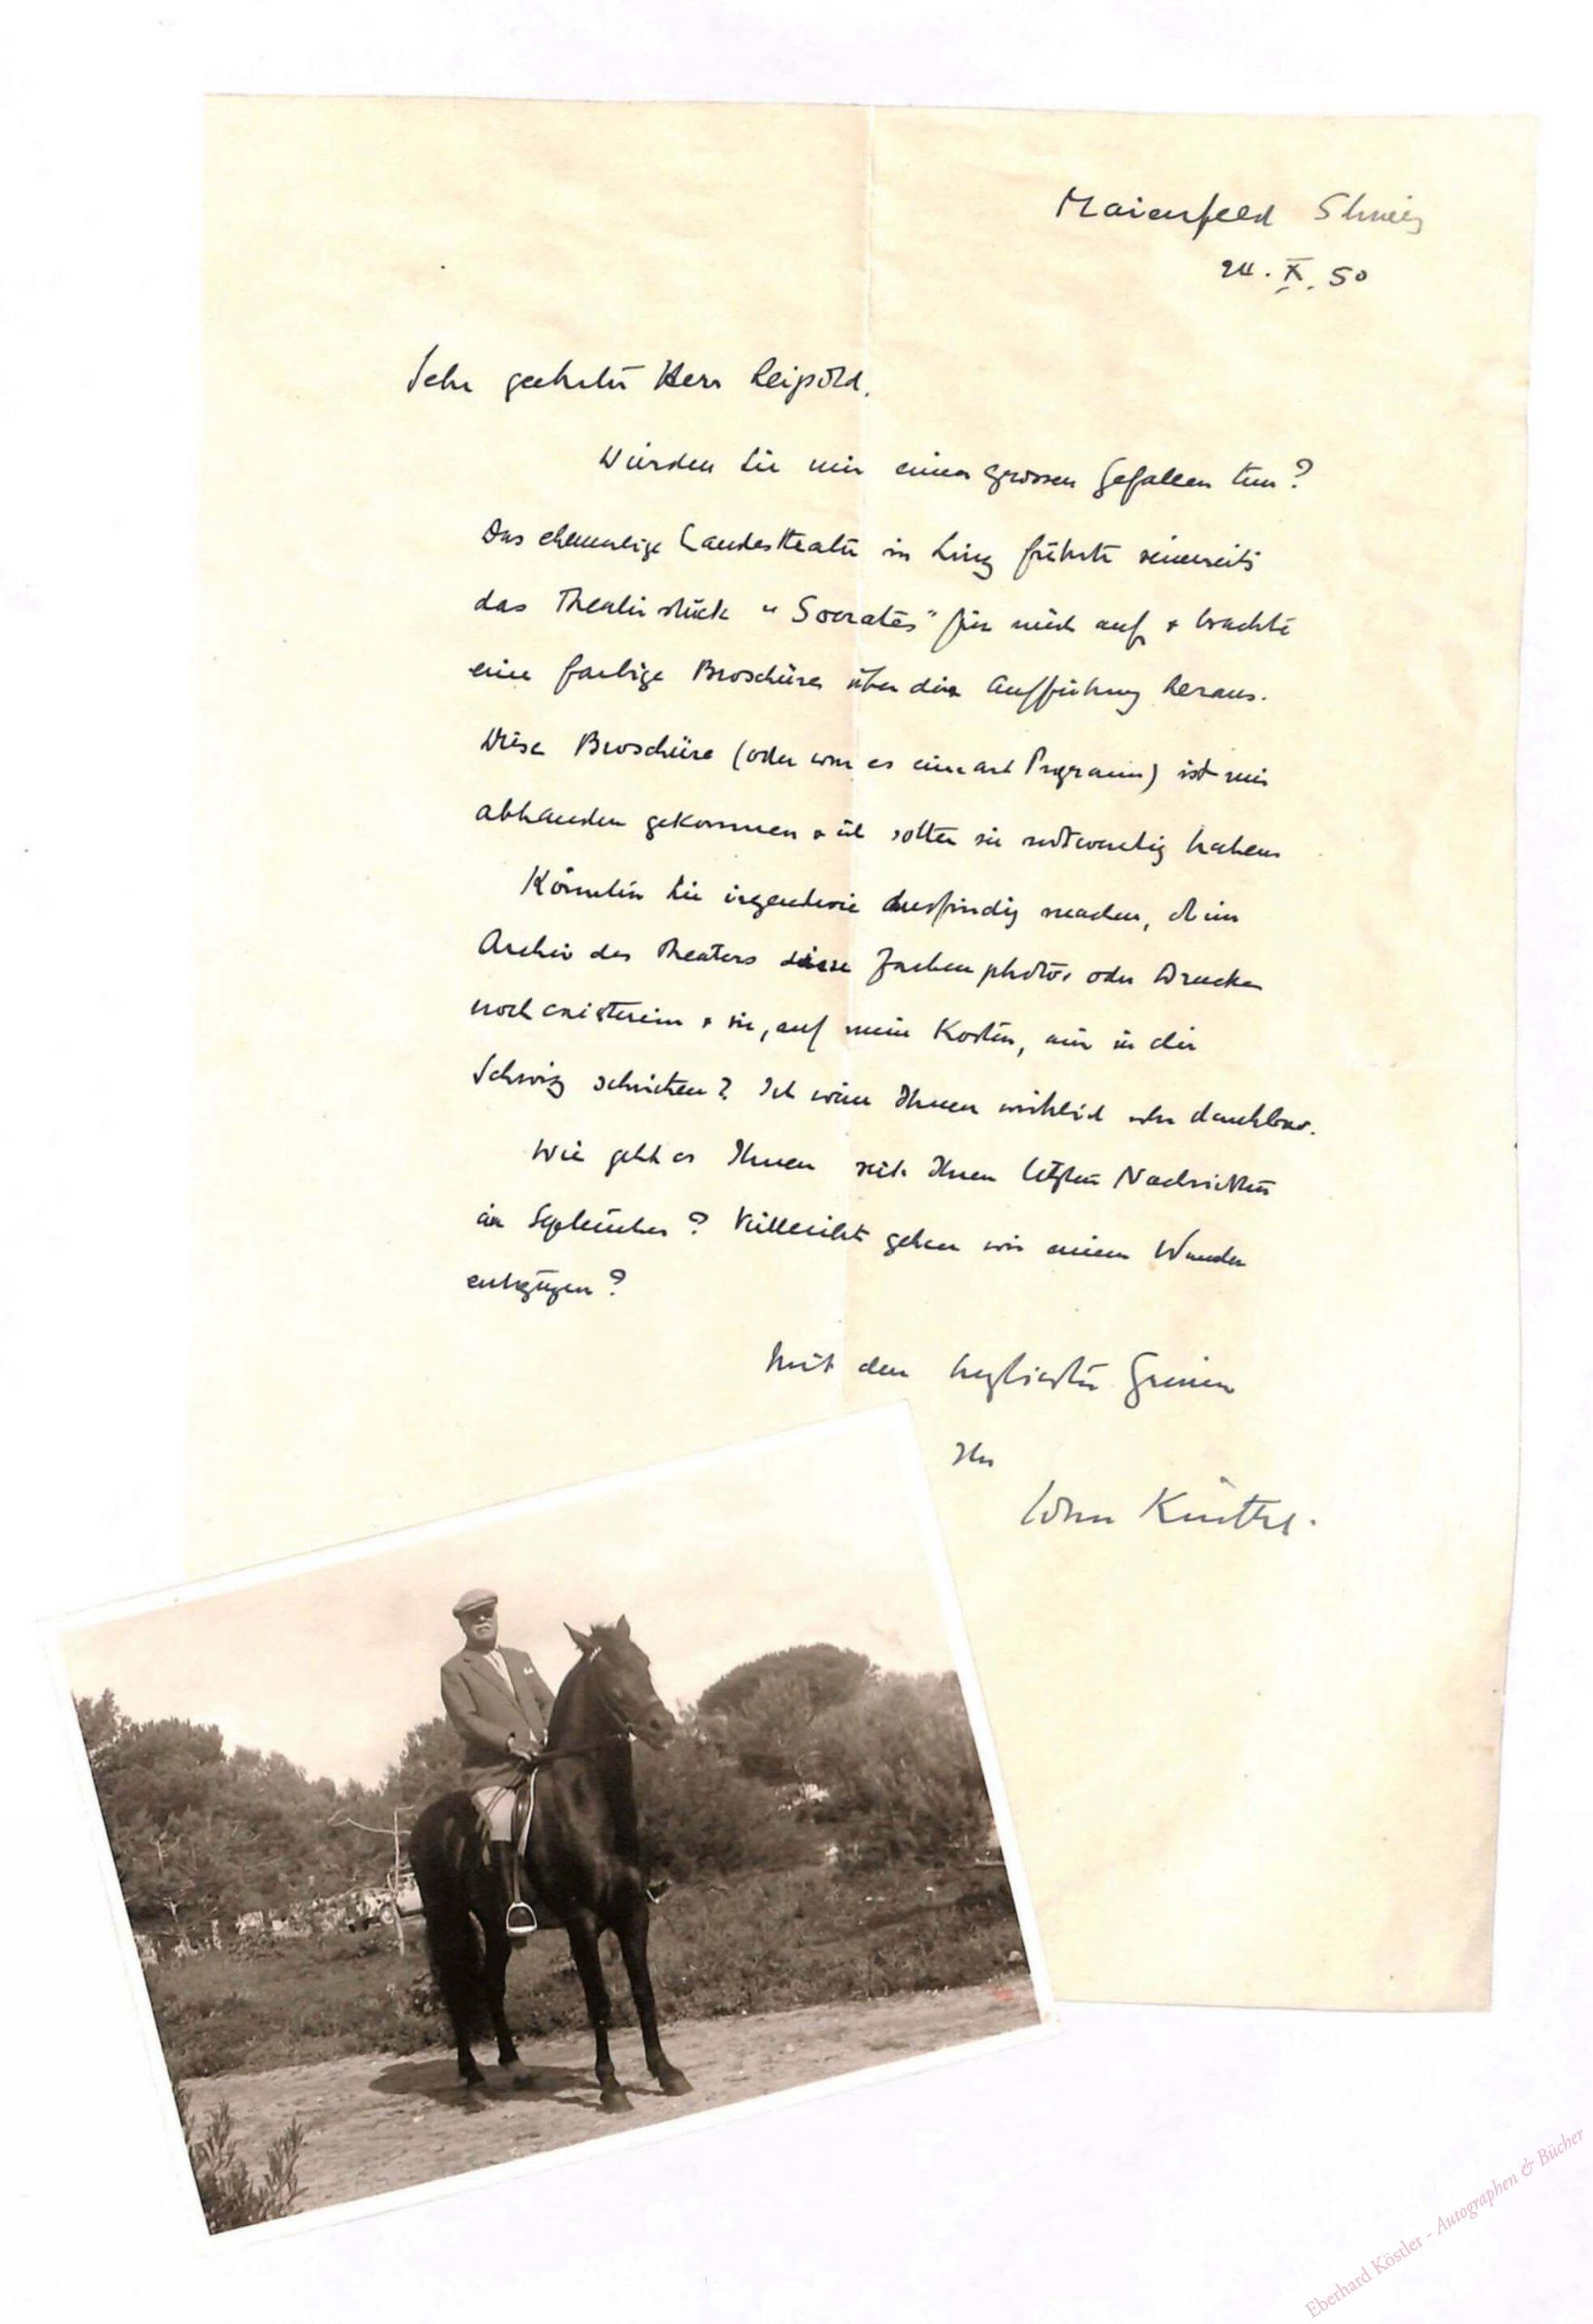 Maienfeld Schweiz
24. X. 50
Sehr geehrter Herr Leipold.
Würden Sie mir einen grossen Gefallen tun?
Das ehemalige Landestheater in Linz führte seinerzeit
das Theaterstück "Socrates" für mich auf + brachte
eine farbige Broschüre über die Aufführung heraus.
Diese Broschüre (oder war es eine art Programm) ist mir
abhanden gekommen + ich sollte sie notwendig haben
Könnten Sie irgendwie ausfindig machen, ob im
Archiv des Theaters diese Farbenphotos oder Drucke
noch existieren + sie, auf meine Kosten, mir in die
Schweiz schicken? Ich wäre Ihnen wirklich sehr dankbar.
Wie geht es Ihnen seit Ihren letzten Nachrichten
im September? Vielleicht gehen wir einem Wunder
entgegen?
Mit den herzlichsten Grüssen
Ihr
John Knittel.
Eberhard Köstler - Autographen & Bücher